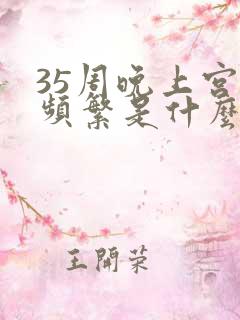 35周晚上宫
頻繁是什麼
王開荣